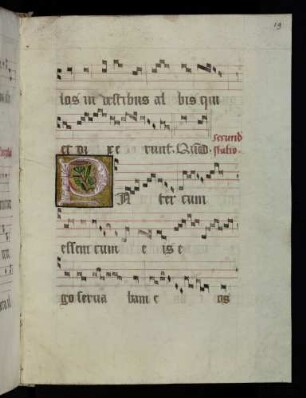 19
los in vestibus al bis qui
et di xe runt. Quid.
secund
statio.
P A ter cum
essem cum e is e
go serva bam e os